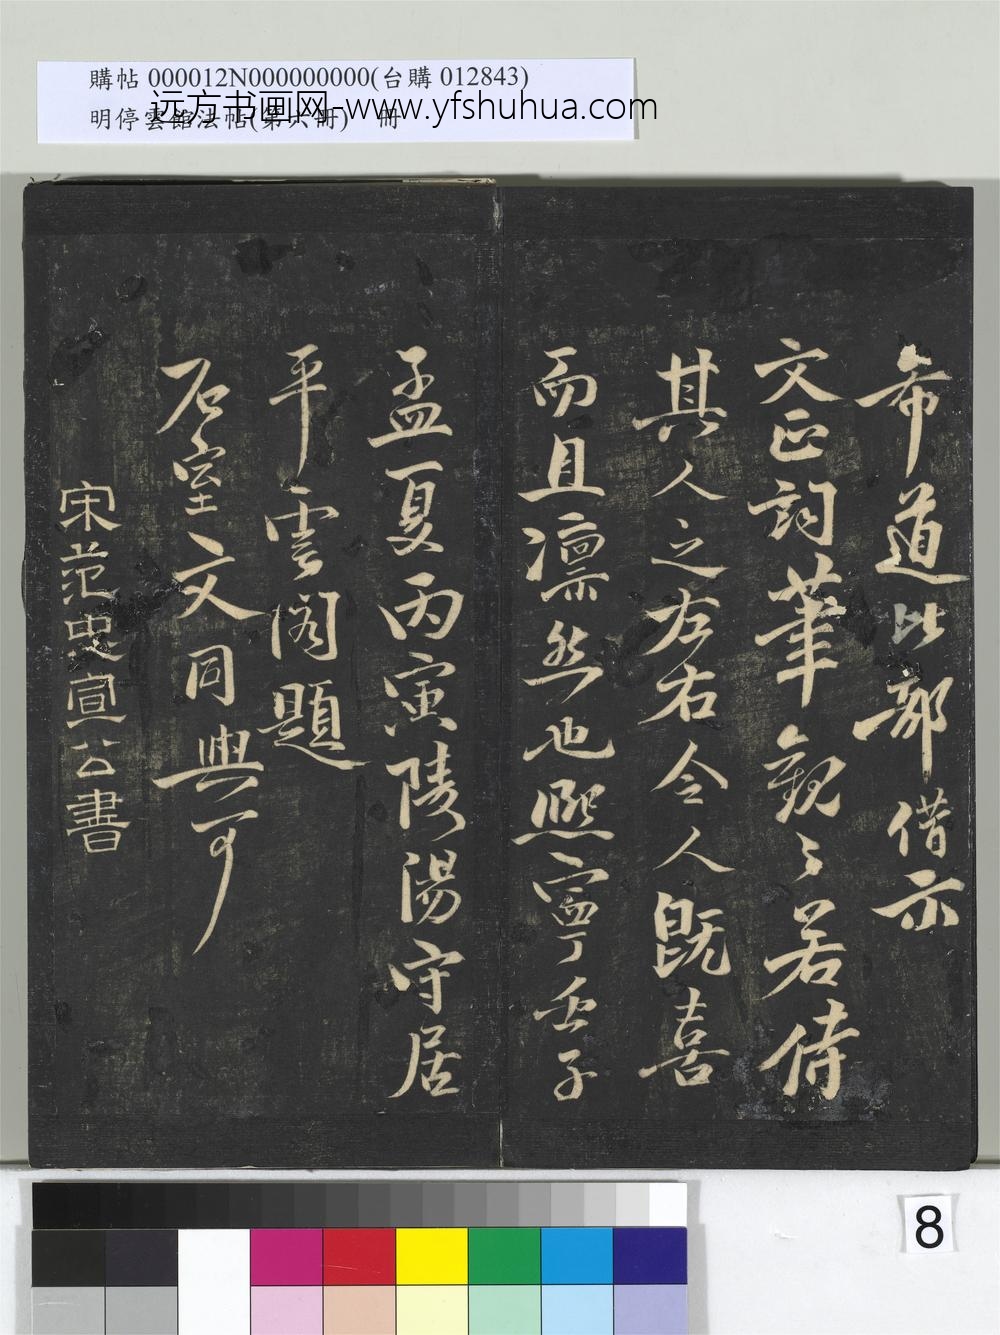 購帖 000012N000000000(台購 012843)
明停雲館法帖(第六冊) 冊
远方书画网-www.yfshuhua.com
希道比部借示
文正詞筆觀之若侍
其人之左右令人既喜
而且凛然也熙寧壬子
孟夏丙寅陵陽守居
平雲閣題
石室文同與可
宋范忠宣公書
8